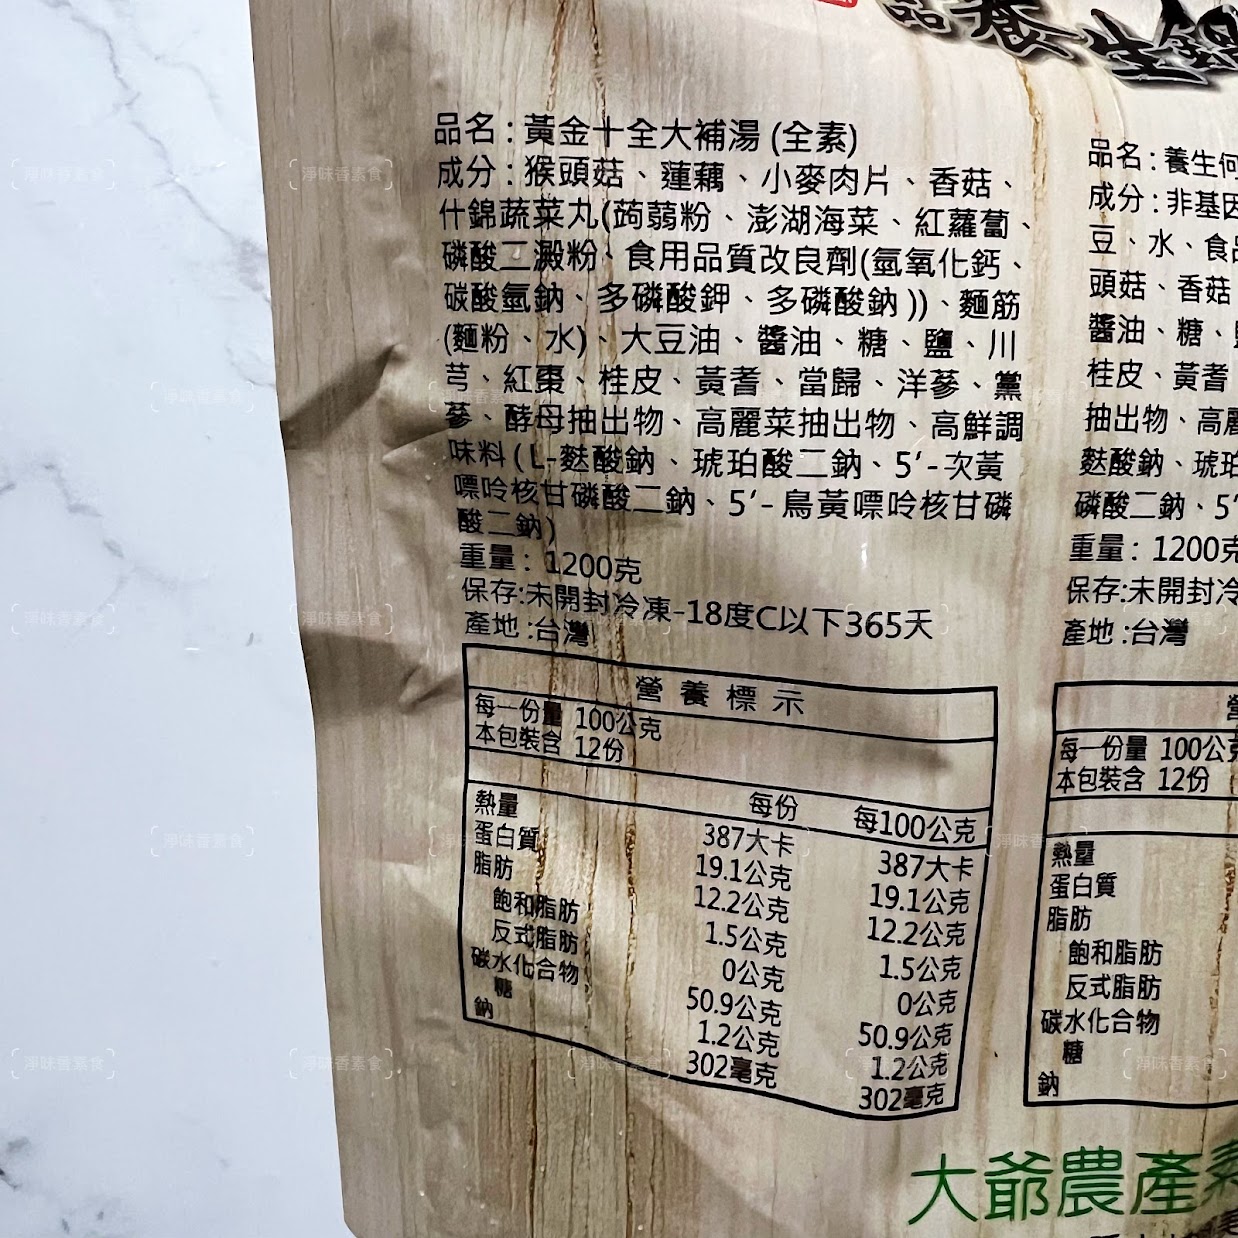 養生鍋
品名：黃金十全大補湯 (全素)
成分：猴頭菇、蓮藕、小麥肉片、香菇、
什錦蔬菜丸(蒟蒻粉、澎湖海菜、紅蘿蔔、
磷酸二澱粉、食用品質改良劑(氫氧化鈣、
碳酸氫鈉、多磷酸鉀、多磷酸鈉))、麵筋
(麵粉、水)、大豆油、醬油、糖、鹽、川
芎、紅棗、桂皮、黃耆、當歸、洋蔘、黨
蔘、酵母抽出物、高麗菜抽出物、高鮮調
味料(L-麩酸鈉、琥珀酸二鈉、5‘-次黃
嘌呤核甘磷酸二鈉、5‘-鳥黃嘌呤核甘磷
酸二鈉)
重量：1200克
保存:未開封冷凍-18度C以下365天
產地:台灣
營養標示
每一份量 100公克
本包裝含 12份
每份 每100公克
熱量 387大卡 387大卡
蛋白質 19.1公克 19.1公克
脂肪 12.2公克 12.2公克
飽和脂肪 1.5公克 1.5公克
反式脂肪 0公克 0公克
碳水化合物 50.9公克 50.9公克
糖 1.2公克 1.2公克
鈉 302毫克 302毫克
品名：養生何
成分：非基因
豆、水、食品
頭菇、香菇
醬油、糖、鹽
桂皮、黃耆
抽出物、高麗
麩酸鈉、琥珀
磷酸二鈉、5‘
重量：1200克
保存:未開封冷
產地:台灣
營
每一份量 100公克
本包裝含 12份
熱量
蛋白質
脂肪
飽和脂肪
反式脂肪
碳水化合物
糖
鈉
大爺農產素
淨味香素食